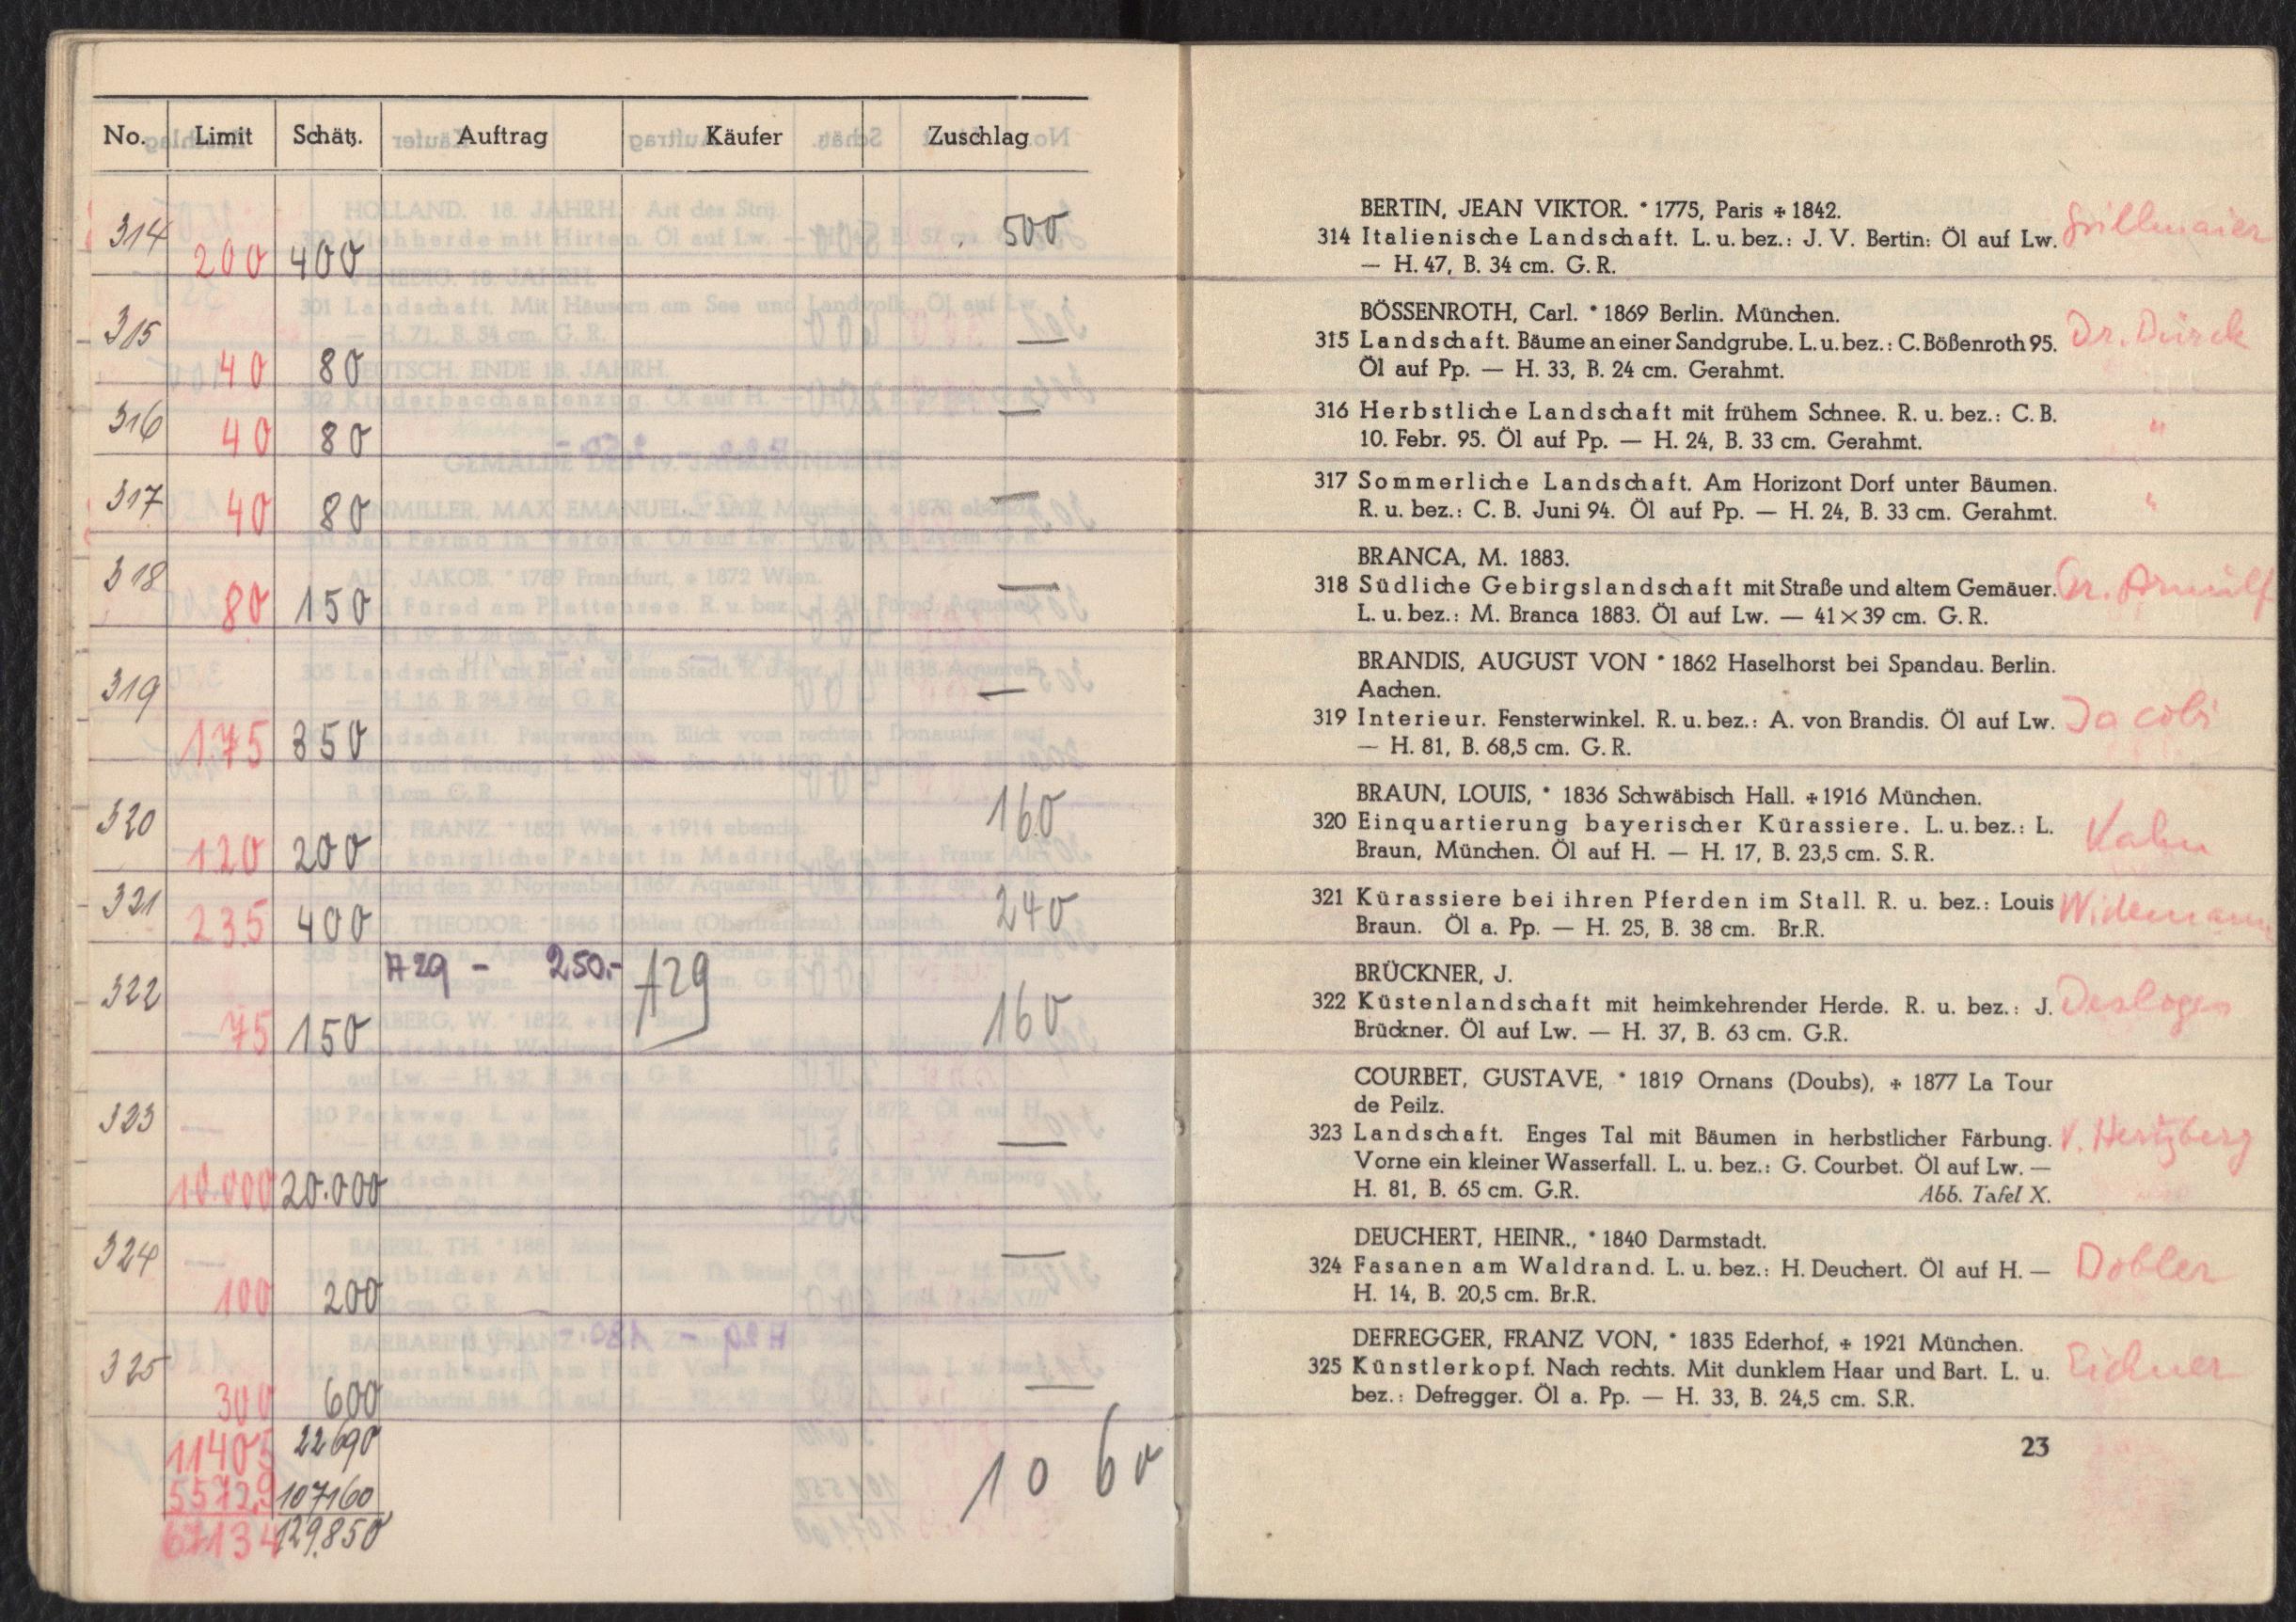 No. Limit Schätz. Auftrag Käufer Zuschlag
314 200 400 500
315 40 80 —
316 40 80 —
317 40 80 —
318 80 150 —
319 175 350 —
320 120 200 160
321 235 400 240
322 75 150 A29 - 250.- A29 160
323 10.000 20.000 —
324 100 200 —
325 300 600 —
11405 22690 1060
55729 107160
67134 129.850
BERTIN, JEAN VIKTOR. * 1775, Paris + 1842.
314 Italienische Landschaft. L. u. bez.: J. V. Bertin: Öl auf Lw. Grillmaier
— H. 47, B. 34 cm. G. R.
BÖSSENROTH, Carl. * 1869 Berlin. München.
315 Landschaft. Bäume an einer Sandgrube. L. u. bez.: C. Bößenroth 95. Dr. Dürck
Öl auf Pp. — H. 33, B. 24 cm. Gerahmt.
316 Herbstliche Landschaft mit frühem Schnee. R. u. bez.: C. B. "
10. Febr. 95. Öl auf Pp. — H. 24, B. 33 cm. Gerahmt.
317 Sommerliche Landschaft. Am Horizont Dorf unter Bäumen. "
R. u. bez.: C. B. Juni 94. Öl auf Pp. — H. 24, B. 33 cm. Gerahmt.
BRANCA, M. 1883.
318 Südliche Gebirgslandschaft mit Straße und altem Gemäuer. Gr. Arnulf
L. u. bez.: M. Branca 1883. Öl auf Lw. — 41×39 cm. G. R.
BRANDIS, AUGUST VON * 1862 Haselhorst bei Spandau. Berlin.
Aachen.
319 Interieur. Fensterwinkel. R. u. bez.: A. von Brandis. Öl auf Lw. Jacobi
— H. 81, B. 68,5 cm. G. R.
BRAUN, LOUIS, * 1836 Schwäbisch Hall. + 1916 München.
320 Einquartierung bayerischer Kürassiere. L. u. bez.: L. Kahn
Braun, München. Öl auf H. — H. 17, B. 23,5 cm. S. R.
321 Kürassiere bei ihren Pferden im Stall. R. u. bez.: Louis Widemann
Braun. Öl a. Pp. — H. 25, B. 38 cm. Br.R.
BRÜCKNER, J.
322 Küstenlandschaft mit heimkehrender Herde. R. u. bez.: J. Desloges
Brückner. Öl auf Lw. — H. 37, B. 63 cm. G.R.
COURBET, GUSTAVE, * 1819 Ornans (Doubs), + 1877 La Tour
de Peilz.
323 Landschaft. Enges Tal mit Bäumen in herbstlicher Färbung. v. Hertzberg
Vorne ein kleiner Wasserfall. L. u. bez.: G. Courbet. Öl auf Lw. —
H. 81, B. 65 cm. G.R. Abb. Tafel X.
DEUCHERT, HEINR., * 1840 Darmstadt.
324 Fasanen am Waldrand. L. u. bez.: H. Deuchert. Öl auf H. — Dobler
H. 14, B. 20,5 cm. Br.R.
DEFREGGER, FRANZ VON, * 1835 Ederhof, + 1921 München.
325 Künstlerkopf. Nach rechts. Mit dunklem Haar und Bart. L. u. Eichner
bez.: Defregger. Öl a. Pp. — H. 33, B. 24,5 cm. S.R.
23